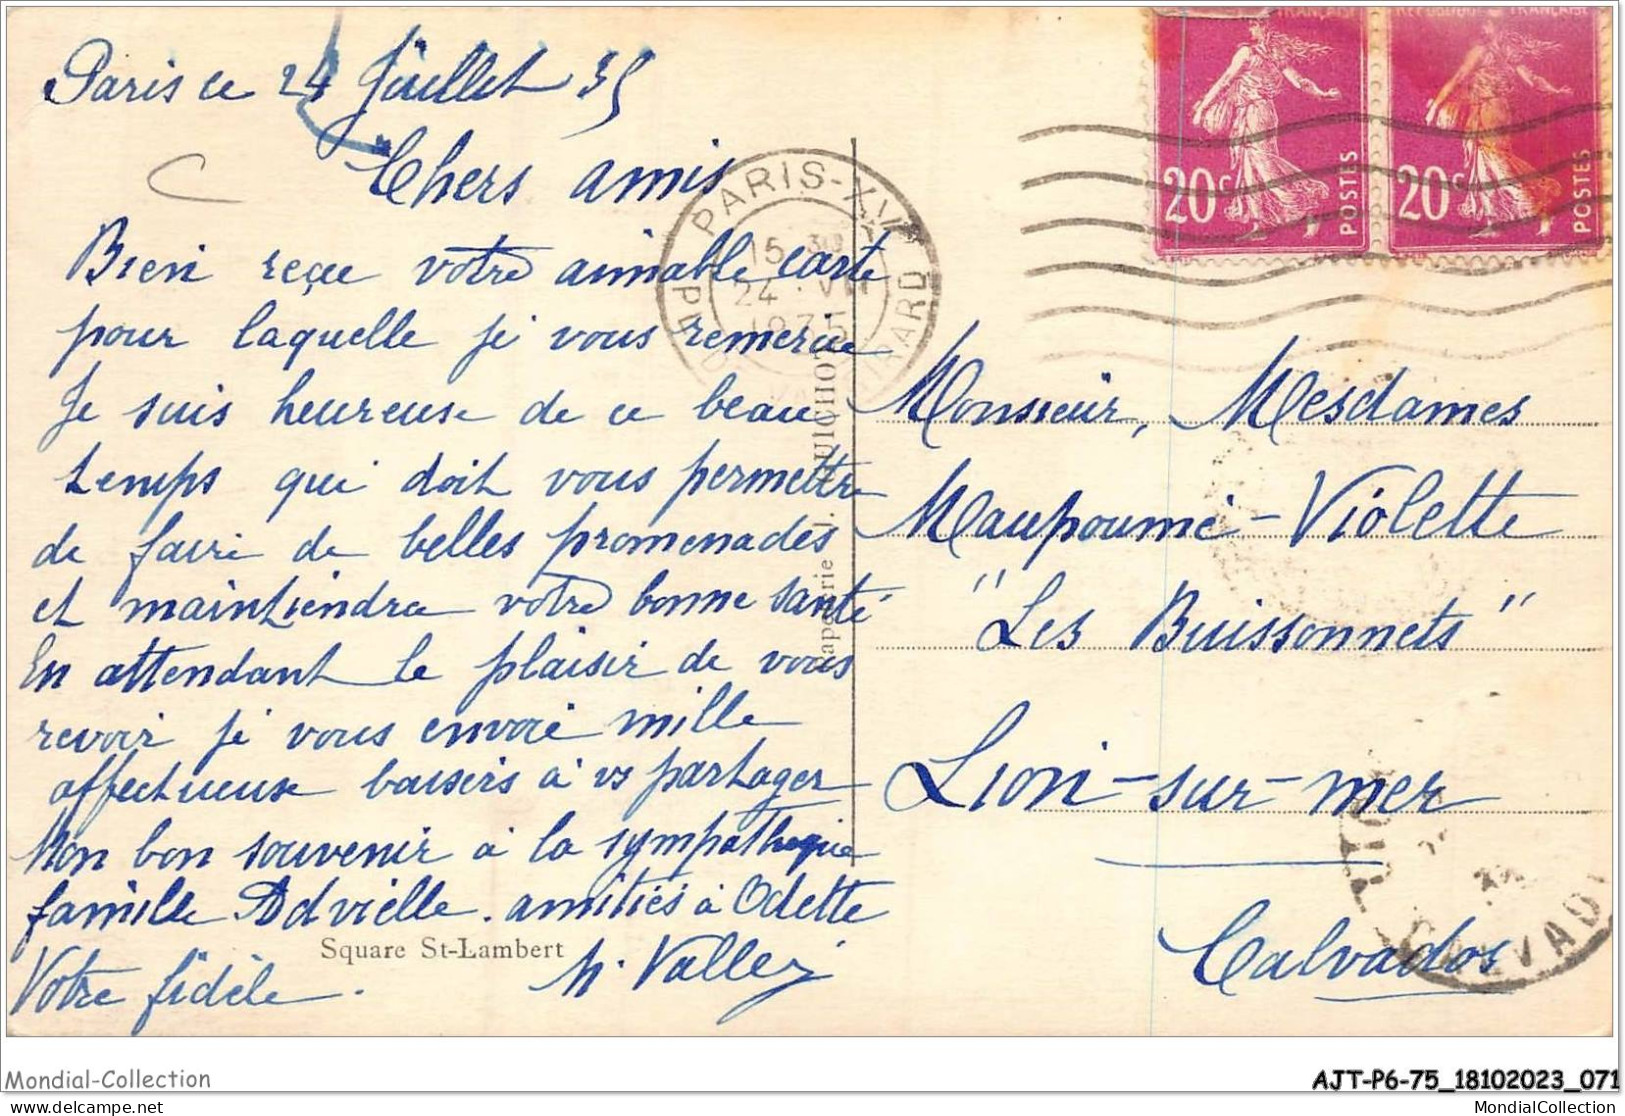 Paris ce 24 Juillet 35
Chers amis
Bien reçue votre aimable carte
pour laquelle je vous remercie
Je suis heureuse de ce beau
temps qui doit vous permettre
de faire de belles promenades
et maintiendra votre bonne santé
En attendant le plaisir de vous
revoir je vous envoie mille
affectueuse baisers à vs partager
Mon bon souvenir à la sympathique
famille Advielle. amitiés à Odette
Votre fidèle.
Square St-Lambert
PARIS-XV
15 30
24 - VII
1935
RÉPUBLIQUE FRANÇAISE
20c POSTES
20c POSTES
Monsieur, Mesdames
Maupoumé-Violette
"Les Buissonnets"
Lion-sur-mer
Calvados
CALVADOS
Mondial-Collection
AJT-P6-75_18102023_071
delcampe.net
MondialCollection